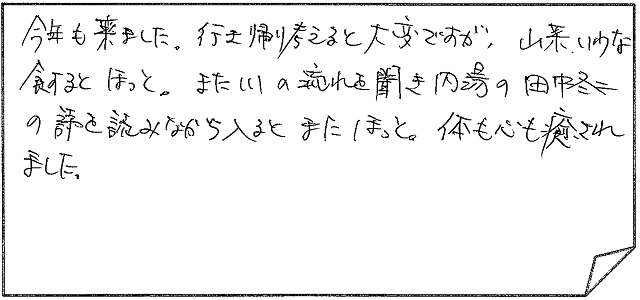 今年も来ました。行き帰り考えると大変ですが、山菜、いわな
食すると ほっと。また川の流れを聞き内湯の田中冬二
の詩を読みながら入ると またほっと。体も心も癒され
ました。